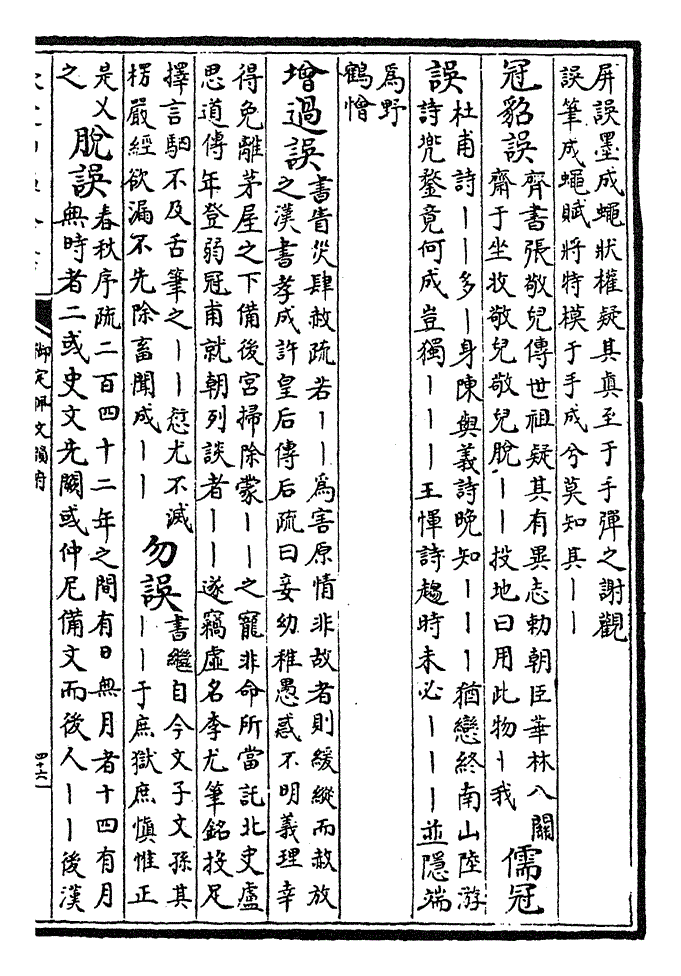 屏誤墨成蠅狀權疑其真至于手彈之謝觀
誤筆成蠅賦將特模于手成兮莫知其丨丨
冠貂誤
齊書張敬兒傳世祖疑其有異志勅朝臣華林八關
齋于坐收敬兒敬兒脫丨丨投地曰用此物丨我
儒冠
誤
杜甫詩丨丨多丨身陳與義詩晚知丨丨丨猶戀終南山陸游
詩兜鍪竟何成豈獨丨丨丨王惲詩趨時未必丨丨丨並隱端
為野
鶴憎
增過誤
書眚災肆赦疏若丨丨為害原情非故者則緩縱而赦放
之漢書孝成許皇后傳后疏曰妾幼稚愚惑不明義理幸
得免離茅屋之下備後宮掃除蒙丨丨之寵非命所當託北史盧
思道傳年登弱冠甫就朝列談者丨丨遂竊虛名李尤筆銘投足
擇言駟不及舌筆之丨丨愆尤不滅
楞嚴經欲漏不先除畜聞成丨丨
勿誤
書繼自今文子文孫其
丨丨于庶獄庶慎惟正
是乂
之
脫誤
春秋序疏二百四十二年之間有日無月者十四有月
無時者二或史文先闕或仲尼備文而後人丨丨後漢
御定佩文韻府
四十六